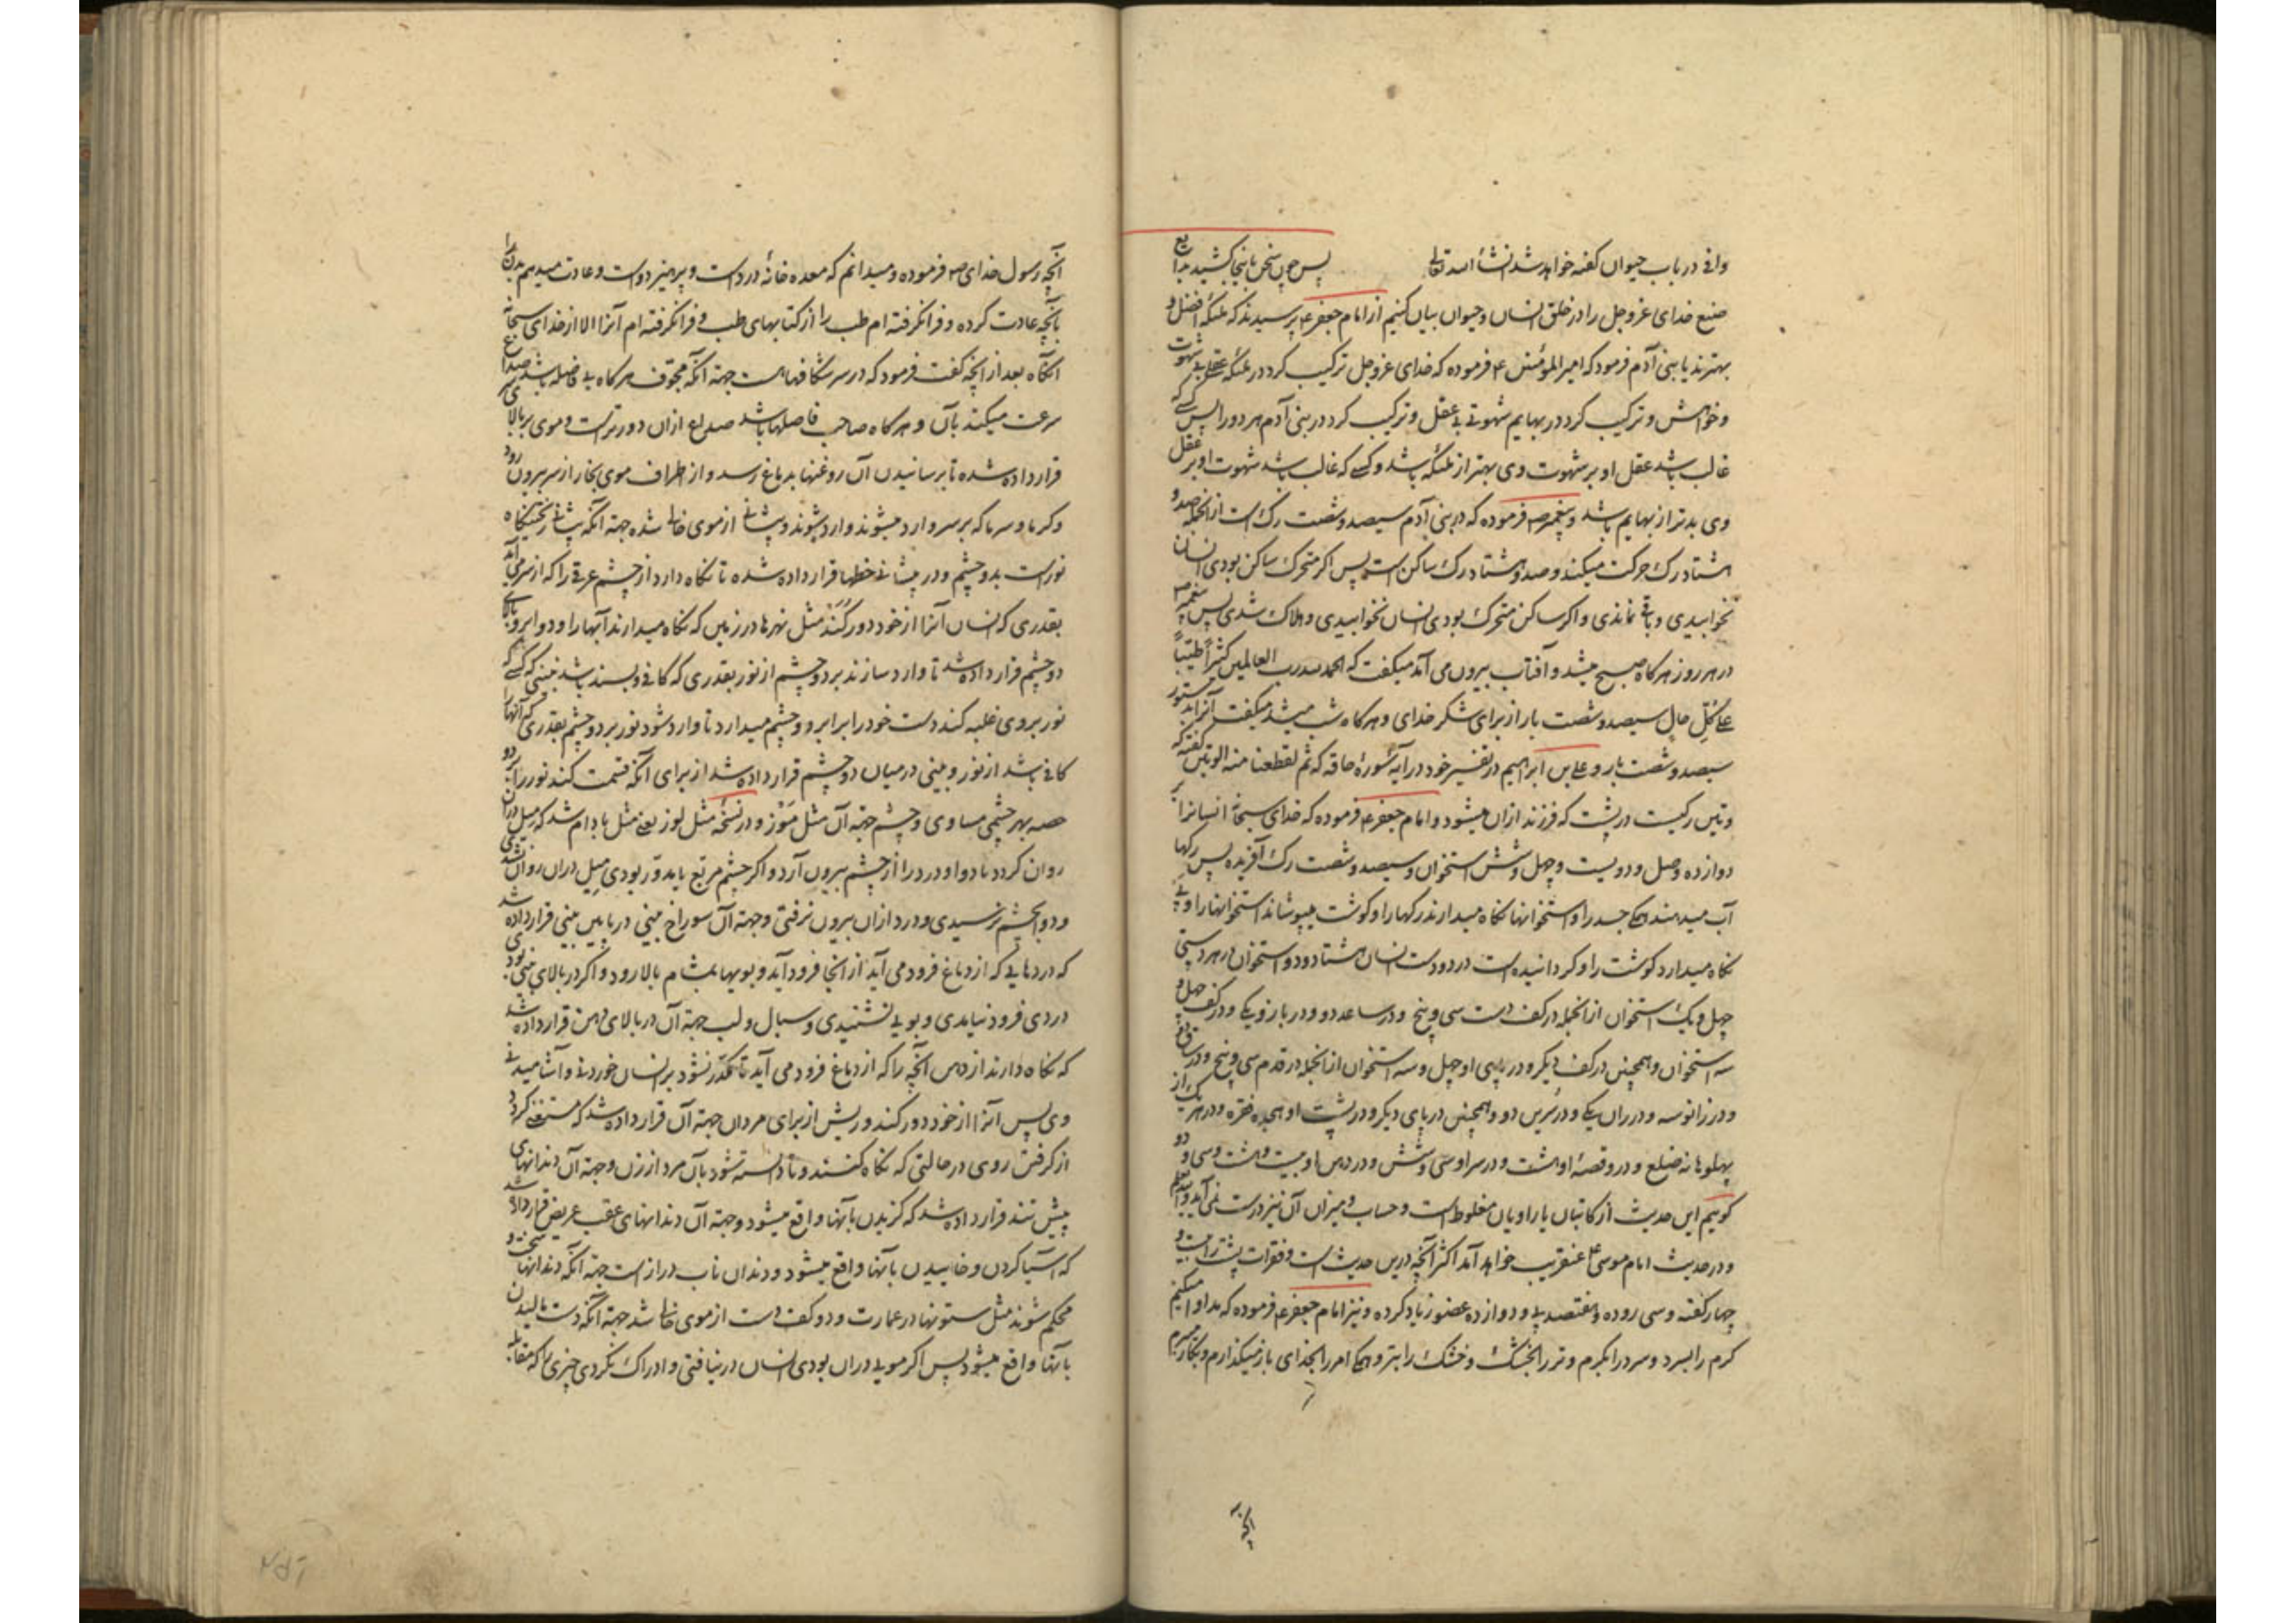 وافی در باب حیوان کفته خواهد شد انشأ الله تعالی پس چون سخن باینجا کشید بدایع
صنع خدای عزوجل را در خلق انسان و حیوان بیان کنیم از امام جعفر ع پرسیدند که ملئکه افضل و
بهترند یا بنی آدم فرمود که امیرالمؤمنین ع فرموده که خدای عزوجل ترکیب کرد در ملئکه عقلی بی شهوت
و خواهش و ترکیب کرد در بهایم شهوتی بی عقل و ترکیب کرد در بنی آدم هر دو را پس کسی که
غالب باشد عقل او بر شهوت وی بهتر از ملئکه باشد و کسی که غالب باشد شهوت او بر عقل
وی بدتر از بهایم باشد و پیغمبر ص فرموده که در بنی آدم سیصد و شصت رک است از آنجمله صد و
هشتاد رک حرکت میکند و صد و هشتاد رک ساکن است پس اکر متحرک ساکن بودی انسان
نخوابیدی و باقی نماندی و اکر ساکن متحرک بودی انسان نخوابیدی و هلاک شدی پس پیغمبر ص
در هر روز هرکاه صبح میشد و آفتاب بیرون می آمد میکفت که الحمد لله رب العالمین کثیراً طیّباً
علی کلّ حال سیصد و شصت بار از برای شکر خدای و هرکاه شب میشد میکفت آنرا
سیصد و شصت بار و علی بن ابراهیم در تفسیر خود در آیهٔ سورهٔ حاقه که ثم لقطعنا منه الوتین کفته که
وتین رکیست در پشت که فرزند ازان میشود و امام جعفر ع فرموده که خدای سبحانه انسانرا بر
دوازده وصل و دویست و چهل و شش استخوان و سیصد و شصت رک آفریده پس رکها
آب میدهند همکی جسد را و استخوانها نکاه میدارند رکها را و کوشت میپوشاند استخوانها را و پی
نکاه میدارد کوشت را و کردانیده است در دو دست انسان هشتاد و دو استخوان در هر دستی
چهل و یک استخوان از آنجمله در کف دست سی و پنج و در ساعد دو و در بازو یکی و در کتف
سه استخوان و همچنین در کف دیکر و در پای او چهل و سه استخوان از آنجمله در قدم سی و پنج و در ساق دو
و در زانو سه و در ران یکی و در سُرین دو و همچنین در پای دیکر و در پشت او هجده فقره و در هر یک از
پهلوها نه ضلع و در وقصهٔ او هشت و در سر او سی و شش و در دهن او بیست و هشت و سی و دو
کوییم این حدیث از کاتبان یا راویان مغلوط است و حساب و میزان آن نیز درست نمی آید والله اعلم
و در حدیث امام موسی ع عنقریب خواهد آمد اکثر آنچه درین حدیث است و فقرات پشت را بیست و
چهار کفته و سی روده و هفتصد پی و دوازده عضو زیاد کرده و نیز امام جعفر ع فرموده که مداوا میکنیم
کرم را بسرد و سرد را بکرم و تر را بخشک و خشک را بتر و همکی امر را بخدای باز میکذارم و بکار میبرم
آنچه
آنچه رسول خدای ص فرموده و میدانم که معده خانهٔ درد است و پرهیز دواست و عادت میدهم بدن را
بآنچه عادت کرده و فرا نکرفته ام طب را از کتابهای طب و فرا نکرفته ام آنرا الا از خدای سبحانه
آنکاه بعد از آنچه کفت فرمود که در سر شکافهاست جهة آنکه مجوّف هرکاه بی فاصله باشد صداع
سرعت میکند بآن و هرکاه صاحب فاصلها باشد صداع ازان دورتر است و موی بر بالای سر
قرار داده شده تا برسانیدن آن روغنها بدماغ رسد و از اطراف موی بخار از سر بیرون رود
و کرما و سرما که بر سر وارد میشوند وارد شوند و پیشانی از موی خالی شده جهة آنکه پیشانی ریختنکاه
نور است بدو چشم و در پیشانی خطها قرار داده شده تا نکاه دارد از چشم عرقی را که از سر می آید
بقدری که انسان آنرا از خود دور کُنَد مثل نهرها در زمین که نکاه میدارند آبها را و دو ابرو بالای
دو چشم قرار داده شد تا وارد سازند بر دو چشم از نور بقدری که کافی و بسند باشد نبینی که کسی که
نور بر وی غلبه کند دست خود را برابر دو چشم میدارد تا وارد شود نور بر دو چشم بقدری که آنها را
کافی باشد از نور و بینی در میان دو چشم قرار داده شد از برای آنکه قسمت کند نور را بر دو
حصه بهر چشمی مساوی و چشم جهة آن مثل مَوْز و در نسخهٔ مثل لوز یعنی مثل بادام شد که میل دران
روان کردد با دوا و درد را از چشم بیرون آرد و اکر چشم مربع یا مدوّر بودی میل دران روان نشدی
و دوا بچشم نرسیدی و درد ازان بیرون نرفتی و جهة آن سوراخ بینی در پایین بینی قرار داده شد
که دردهایی که از دماغ فرود می آید از آنجا فرود آید و بویها بمشام بالا رود و اکر در بالای بینی بودی
دردی فرود نیامدی و بویی نشنیدی و سبال و لب جهة آن در بالای دهن قرار داده شد
که نکاه دارند از دهن آنچه را که از دماغ فرود می آید تا مکدّر نشود بر انسان خوردنی و آشامیدنی
وی پس آنرا از خود دور کند و ریش از برای مردان جهة آن قرار داده شد که مستغنی کردد
از کرفتن روی در حالتی که نکاه کنند و تا دانسته شود بآن مرد از زن و جهة آن دندانهای
پیش تند قرار داده شد که کزیدن بآنها واقع میشود و جهة آن دندانهای عقب عریض قرار داده شد
که آسیا کردن و خاییدن بآنها واقع میشود و دندان ناب دراز است جهة آنکه دندانها سخت و
محکم شوند مثل ستونها در عمارت و دو کف دست از موی خالی شد جهة آنکه دست مالیدن
بآنها واقع میشود پس اکر مویی دران بودی انسان در نیافتی و ادراک نکردی چیزی را که مقابله